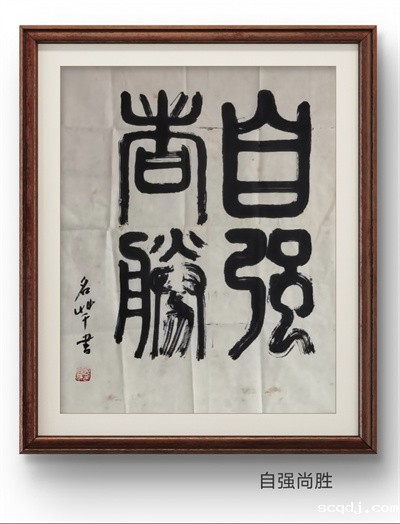 自强
尚勝
名華書
自强尚胜
scqdj.com